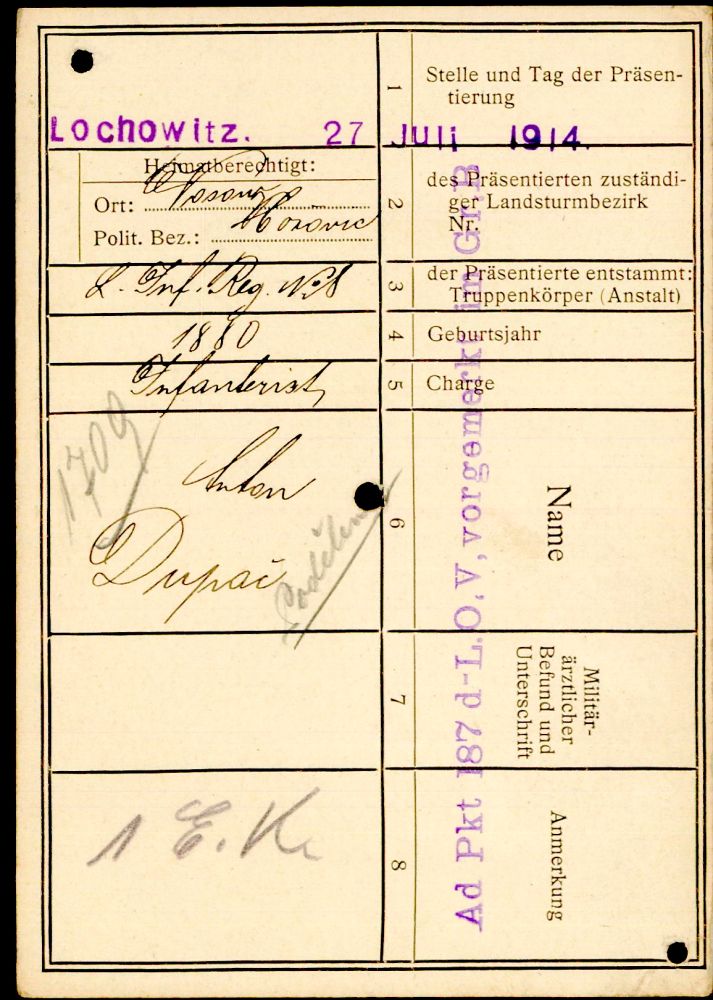 1
Stelle und Tag der Präsen-
tierung
Lochowitz. 27 Juli 1914.
Heimatberechtigt:
Ort:
Polit. Bez.: Hořovic
2
des Präsentierten zuständi-
ger Landsturmbezirk
Nr.
L. Inf. Reg. No 8
3
der Präsentierte entstammt:
Truppenkörper (Anstalt)
1880
4
Geburtsjahr
Infanterist
5
Charge
1709
Anton
Dupač
6
Name
7
Militär-
ärztlicher
Befund und
Unterschrift
1 E. K.
8
Anmerkung
Ad Pkt 187 d-L.O,V, vorgemerkt im GrB